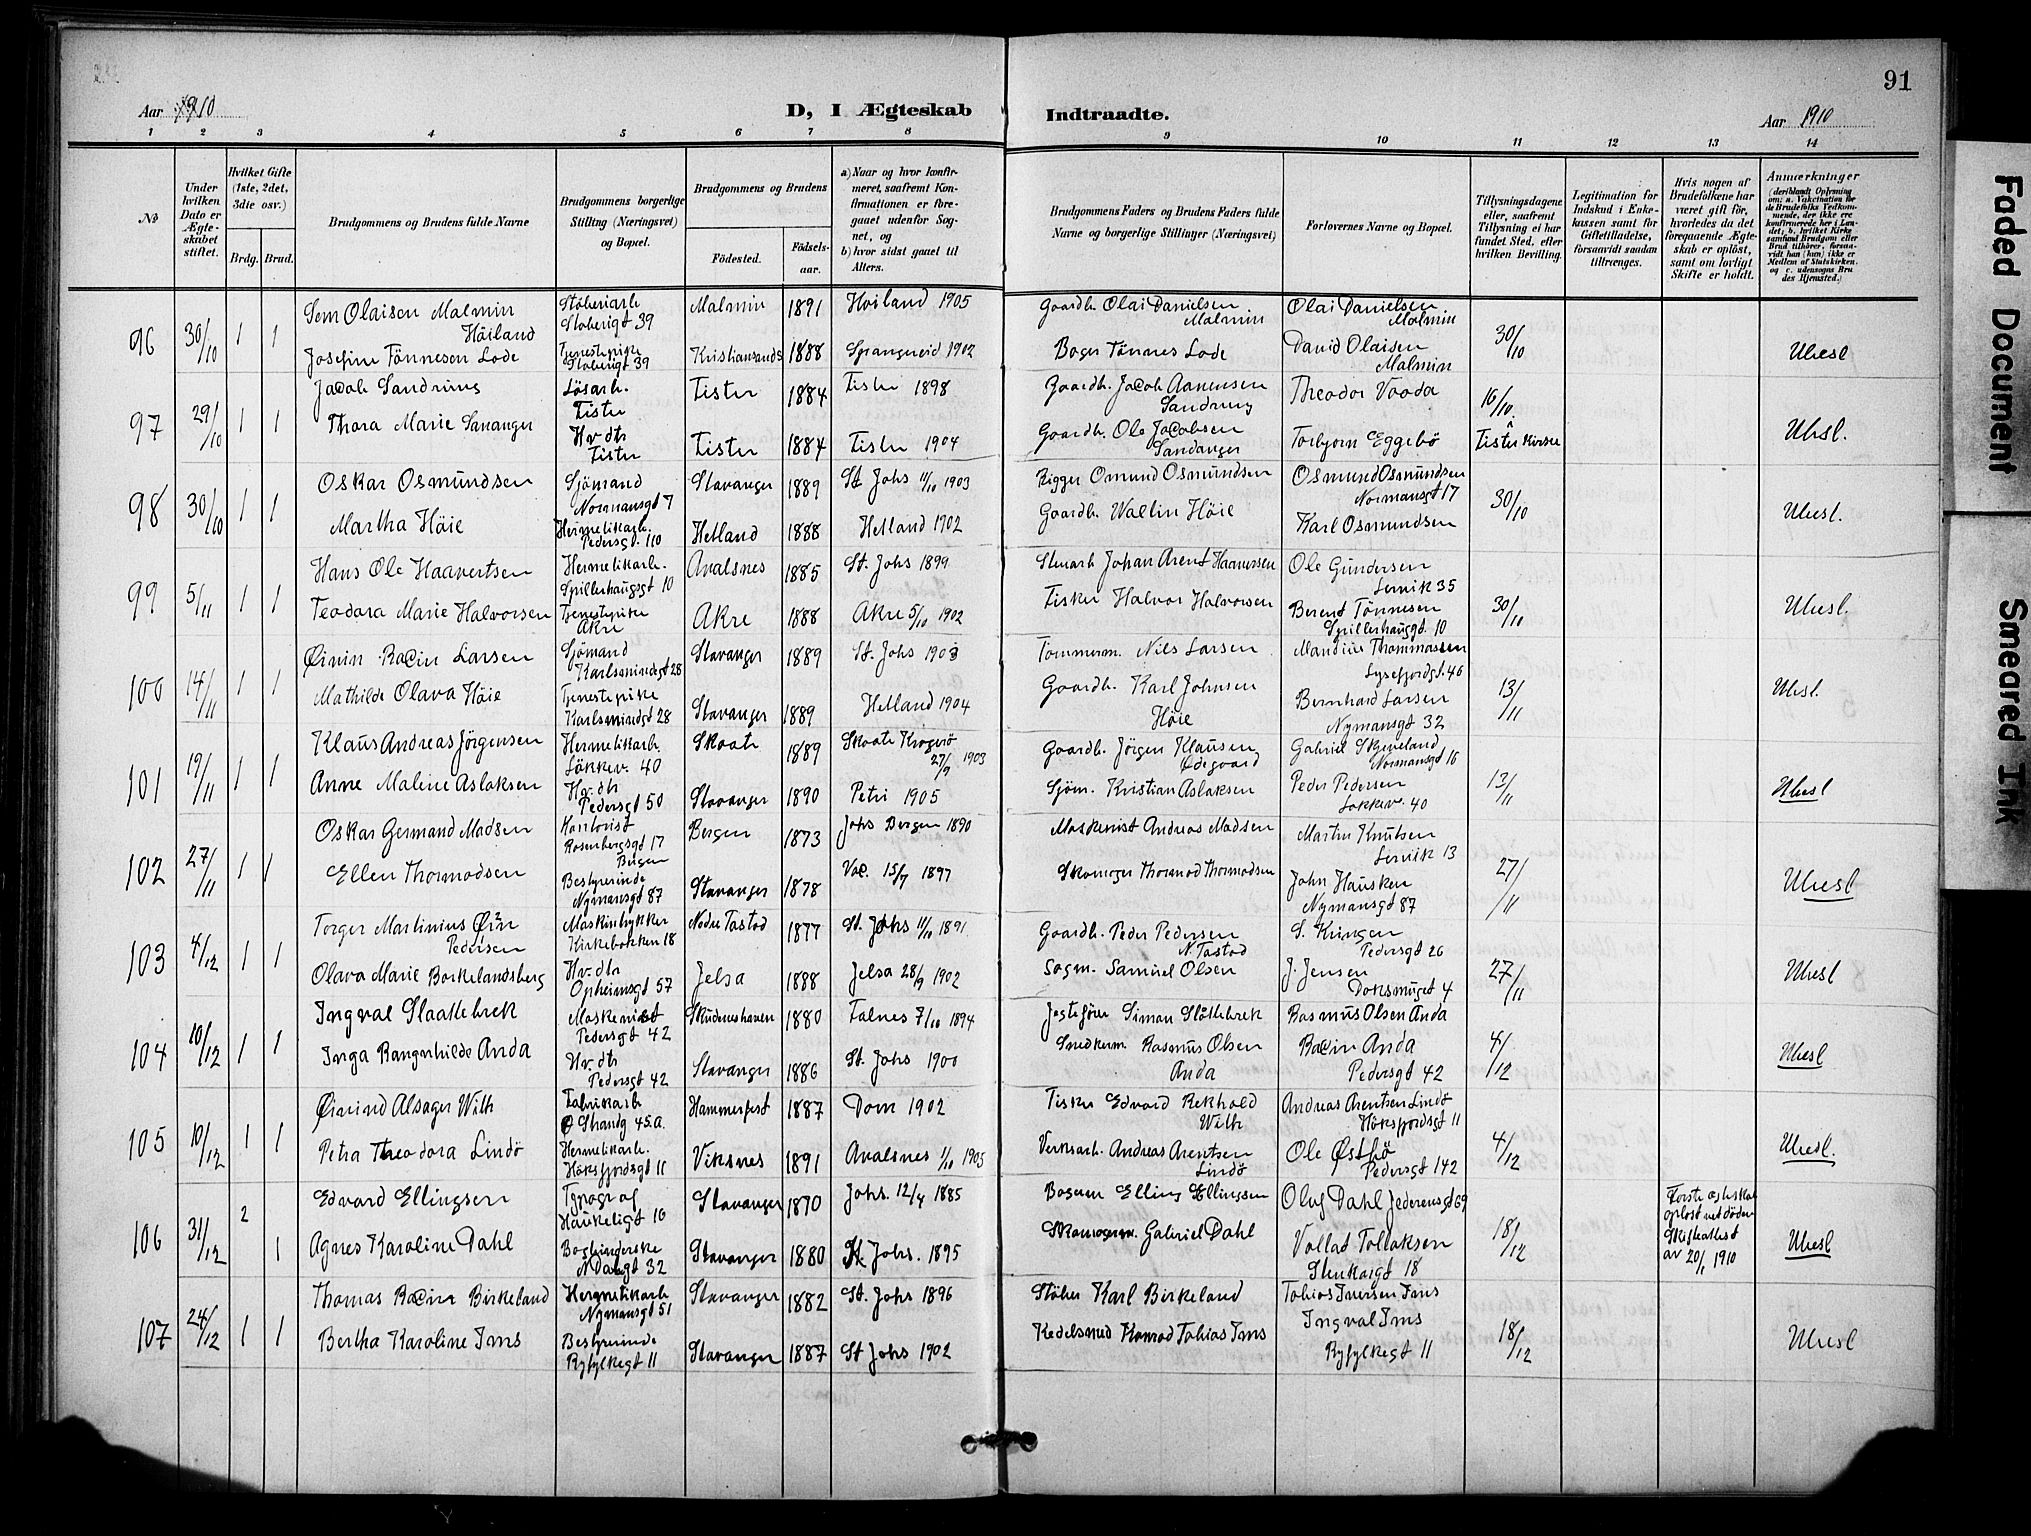 91
Aar 1910
D, I Ægteskab
Indtraadte.
Aar 1910
1 2 3 4 5 6 7 8 9 10 11 12 13 14
No
Under hvilken Dato er Ægteskabet stiftet.
Hvilket Gifte (1ste, 2det, 3die osv.)
Brdg. Brud.
Brudgommens og Brudens fulde Navne
Brudgommens borgerlige Stilling (Næringsvei) og Bopæl.
Brudgommens og Brudens
Fødested. Fødselsaar.
a) Naar og hvor konfirmeret, saafremt Konfirmationen er foregaaet udenfor Sognet, og
b) hvor sidst gaaet til Alters.
Brudgommens Faders og Brudens Faders fulde Navne og borgerlige Stillinger (Næringsvei)
Forlovernes Navne og Bopæl.
Tillysningsdagene eller, saafremt Tillysning ei har fundet Sted, efter hvilken Bevilling.
Legitimation for Indskud i Enkekassen samt for Giftetilladelse, forsaavidt saadan tiltrænges.
Hvis nogen af Brudefolkene har været gift før, hvorledes da det foregaaende Ægteskab er opløst, samt om lovligt Skifte er holdt.
Anmærkninger
96 30/10 1 1
Sem Olaisen Malmin Höiland
Stöberiarb Stöberigt 39 Malmin 1891 Hviland 1905
Gaardb. Olai Danielsen Malmin
Olai Danielsen Malmin
Josefine Tönnesen Lode
Tjenestepike Stöberigt 39 Kristiansands 1888 Spangereid 1902
Boger Tönnes Lode
David Olaisen Malmin
30/10
Uhesl
97 29/10 1 1
Jacob Sandrung
Lösarb. Fister Fister 1884 Fister 1898
Gaardb. Jacob Aanensen Sandrung
Theodor Vaada
16/10
Thora Marie Sananger
Hv. dtr Fister Fister 1884 Fister 1904
Gaardb. Ole Jacobsen Sandanger
Torbjorn Eggebö
Fister Kirke
Uhesl.
98 30/10 1 1
Oskar Osmundsen
Sjömand Normansgt 7 Stavanger 1889 St Johs 11/10 1903
Rigger Omund Osmundsen
Osmund Osmundsen Normansgt 17
Martha Höie
Hermetikarb. Pedersgt. 110 Hetland 1888 Hetland 1902
Gaardb. Wallin Höie
Karl Osmundsen
30/10
Uhesl.
99 5/11 1 1
Hans Ole Haavertsen
Hermetikarb. Spillerhaugsgt 10 Avalsnes 1885 St. Johs 1899
Stuearb Johan Arent Haavertsen
Ole Gundersen Lervik 35
Teodora Marie Halvorsen
Tjenestepike Akre Akre 1888 Akre 5/10 1902
Fisker Halvor Halvorsen
Berent Tönnesen Spillerhausgt. 10
30/10
Uhesl.
100 14/11 1 1
Öivin Racin Larsen
Sjömand Karlsmindegt 28 Stavanger 1889 St. Johs 1903
Tömmerm. Nils Larsen
Mandius Thommassen Lysefjordgt. 46
Mathilde Olava Höie
Tjenestepike Karlsmindegt 28 Stavanger 1889 Hetland 1904
Gaardb. Karl Johnsen Höie
Bernhard Larsen Nymansgt 32
13/11
Uhesl.
101 19/11 1 1
Klaus Andreas Jörgensen
Hermetikarb. Lökkev. 40 Skaate 1889 Skaate Kragerö 27/9 1903
Gaardb. Jörgen Klausen Ödegaard
Gabriel Skjeveland Normansgt 16
Anne Maline Aslaksen
Hv. dtr Pedersgt 50 Stavanger 1890 Petri 1905
Sjöm. Kristian Aslaksen
Peder Pedersen Lökkev. 40
13/11
Uhesl
102 27/11 1 1
Oskar Germand Madsen
Rosenbergsgt 17 Bergen Bergen 1873 Johs Bergen 1890
Maskenist Andreas Madsen
Martin Knutsen Lervik 13
Ellen Thormodsen
Bestyrerinde Nymansgt 87 Stavanger 1878 Vac. 15/7 1897
Skomager Thormod Thormodsen
John Hausken Nymansgt 87
27/11
Uhesl
103 4/12 1 1
Torger Martinius Öin Pedersen
Maskinbykker Kirkebakken 18 Nedre Tastad 1877 St. Johs 11/10 1891
Gaardb. Peder Pedersen N. Tastad
S. Kringen Pedersgt 26
Olava Marie Borkelandsberg
Hv. dtr Opheimsgt 57 Jelsa 1888 Jelsa 28/9 1902
Sagm. Samuel Olsen
J. Jensen Doksmuget 4
27/11
Uhesl
104 10/12 1 1
Ingval Slaattebrek
Maskenist Pedersgt 42 Skudneshaven 1880 Falnes 7/10 1894
Jesteförer Simon Slåttebrek
Rasmus Olsen Anda
Inga Rangnhilde Anda
Hv. dtr Pedersgt 42 Stavanger 1886 St. Johs 1900
Snedkerm. Rasmus Olsen Anda
Racin Anda Pedersgt 42
4/12
Uhesl
105 10/12 1 1
Öivind Alsager Wilh
Fabrikarb Ö Strandg 45.a. Hammerfest 1887 Dom 1902
Fisker Edvard Rekhold Wilh
Andreas Arentsen Lindö Höksfjordsgt 11
Petra Theodora Lindö
Hermetikarb. Höksfjordsgt 11 Viksnes 1891 Avalsnes 1/10 1905
Verksarb. Andreas Arentsen Lindö
Ole Östbö Pedersgt 142
4/12
Uhesl.
106 31/12 2 1
Edvard Ellingsen
Typograf Haukeligt 16 Stavanger 1870 Johs. 12/4 1885
Bogeren Elling Ellingsen
Oluf Dahl Jederensgt 69
Förste egteskab oplöst ved döden Skifteattest av 20/1 1910
Agnes Karoline Dahl
Bogbinderske N Dalsgt 32 Stavanger 1880 St Johs. 1895
Skomagerm. Gabriel Dahl
Vollat Tollaksen Stenkargt 18
18/12
Uhesl
107 24/12 1 1
Thomas Racin Birkeland
Hermetikarb Nymansgt 51 Stavanger 1882 St. Johs 1896
Stöber Karl Birkeland
Tobias Iversen Ims
Bertha Karoline Ims
Bestyrerinde Ryfylkegt 11 Stavanger 1887 St Johs 1902
Kedelsmed Konrad Tobias Ims
Ingval Ims Ryfylkegt 11
18/12
Uhesl
Faded Document
Smeared Ink